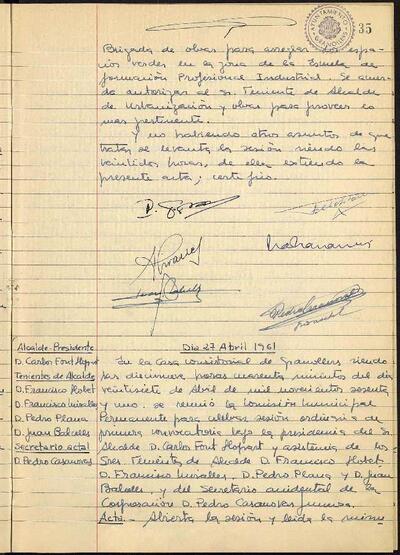 AYUNTAMIENTO
GRANOLLERS
35
Brigada de obras para arreglar los espa-
cios verdes en la zona de la Escuela de
formación Profesional Industrial. Se acuer-
da autorizar al Sr. Teniente de Alcalde
de Urbanización y obras para proveer lo
mas pertinente.
Y no habiendo otros asuntos de que
tratar se levanta la sesión siendo las
veintidos horas, de ella extiendo la
presente acta; certifico.
Alcalde-Presidente
D. Carlos Font Llopart
Tenientes de Alcalde
D. Francisco Llobet
D. Francisco Miralles
D. Pedro Plana
D. Juan Batalles
Secretario actal
D. Pedro Casanovas
Dia 27 Abril 1961
En la Casa Consistorial de Granollers siendo
las diecinueve horas cuarenta minutos del dia
veintisiete de Abril de mil novecientos sesenta
y uno. se reunió la Comisión Municipal
Permanente para celebrar sesión ordinaria de
primera convocatoria bajo la presidencia del Sr.
Alcalde D. Carlos Font Llopart y asistencia de los
Sres Tenientes de Alcalde D. Francisco Llobet
D. Francisco Miralles, D. Pedro Plana y D. Juan
Batalles, y del Secretario accidental de la
Corporación D. Pedro Casanovas
Acta.- Abierta la sesión y leida la misma